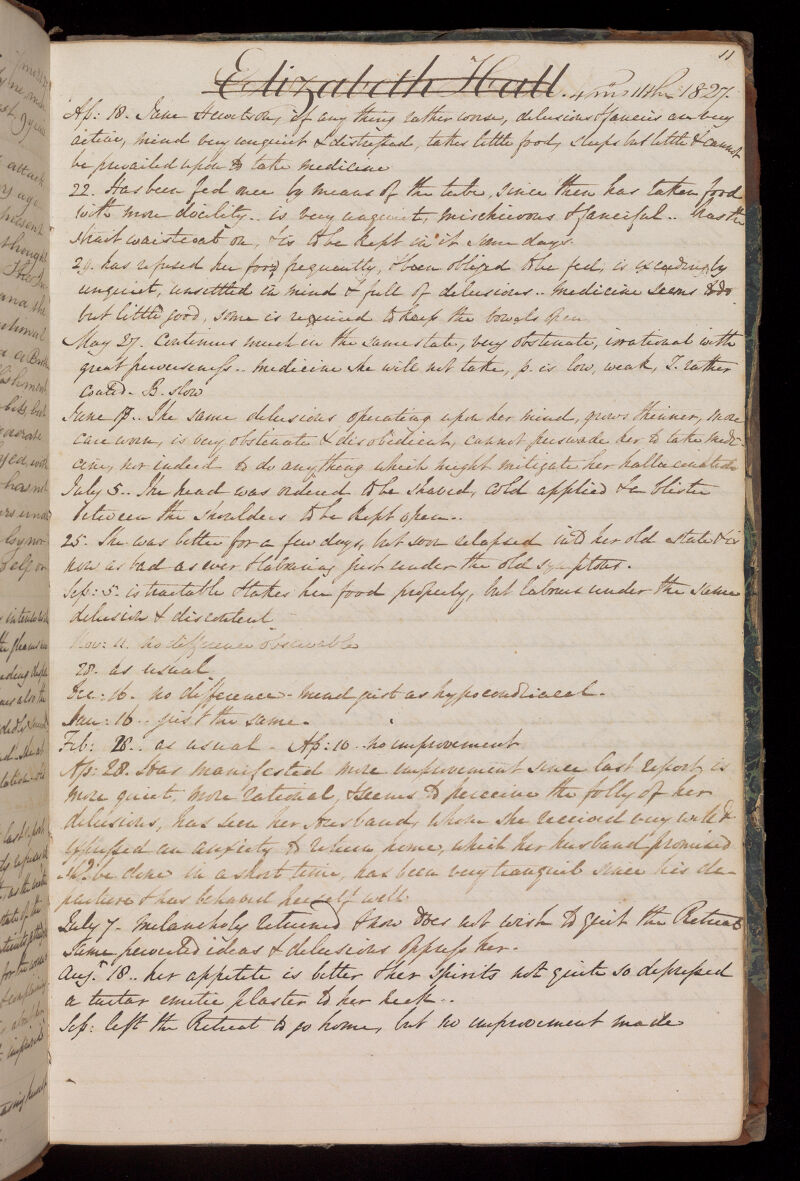 11
Elizabeth Hall. 4 mo 11th 1827.
Ap: 18. Jane Hewitson, if any thing rather worse, delusions & fancies are very
active, mind very unquiet & distressed, takes little food, sleeps but little & cannot
be prevailed upon to take medicine
22. Has been fed once by means of the tube, since then has taken food
with more docility.. is very unquiet, mischievous & fanciful.. has the
strait waistcoat on, & is to be kept in it some days.
29. has refused her food frequently, & been obliged to be fed, is exceedingly
unquiet, unsettled in mind & full of delusions.. medicine seems to do
but little good, some is required to keep the bowels open
May 27. Continues much in the same state, very obstinate, irrational with
great perverseness.. medicine she will not take, p. is low, weak, T. rather
coated. B. slow
June 17.. The same delusions operating upon her mind, grows thinner, more
care worn, is very obstinate & disobedient, cannot persuade her to take medi-
cine, nor indeed to do anything which might mitigate her hallucinations
July 5.. The head was ordered to be shaved, cold applied & a blister
between the shoulders to be kept open..
25. She was better for a few days, but soon relapsed into her old state & is
now as bad as ever & labouring just under the old symptoms.
Sep: 5. is tractable & takes her food properly, but labours under the same
delusion & discontent
Nov: 11. no difference observable
28. as usual
Dec: 16. no difference. mind just as hypocondriacal.
Jan: 16.. just the same.
Feb: 28.. as usual. Ap: 10.. no improvement
Ap: 28. Has manifested more improvement since last report, is
more quiet, more rational, & seems to perceive the folly of her
delusions, has seen her Husband, whom she received very well &
expressed an anxiety to return home, which her husband promised
shd. be done in a short time, has been very tranquil since his de-
parture & has behaved herself well.
July 7. melancholy returned & now does not wish to quit the Retreat
Same perverted ideas & delusions oppress her.
Aug: 18.. her appetite is better & her spirits not quite so depressed
a tartar emetic plaster to her neck..
Sep: left the Retreat to go home, but no improvement made